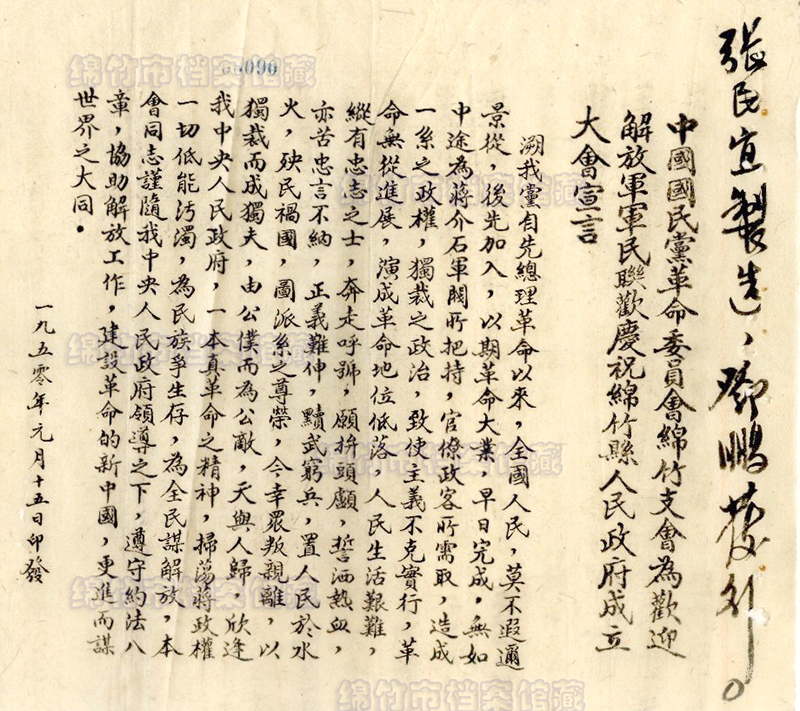 張民宜製造、鄧鵬蔆引。
中國國民黨革命委員會綿竹支會為歡迎
解放軍軍民聯歡慶祝綿竹縣人民政府成立
大會宣言
溯我黨自先總理革命以來，全國人民，莫不遐邇
景從，後先加入，以期革命大業，早日完成，無如
中途為蔣介石軍閥所把持，官僚政客所需取，造成
一系之政權，獨裁之政治，致使主義不克實行，革
命無從進展，演成革命地位低落，人民生活艱難，
縱有忠志之士，奔走呼號，願拚頭顱，誓洒熱血，
亦苦忠言不納，正義難伸，黷武窮兵，置人民於水
火，殃民禍國，圖派系之尊榮，今幸眾叛親離，以
獨裁而成獨夫，由公僕而為公敵，天與人歸，欣逢
我中央人民政府，一本真革命之精神，掃蕩蔣政權
一切低能污濁，為民族爭生存，為全民謀解放，本
會同志謹隨我中央人民政府領導之下，遵守約法八
章，協助解放工作，建設革命的新中國，更進而謀
世界之大同。
一九五零年元月十五日印發
00090
绵竹市档案馆藏
绵竹市档案馆藏
绵竹市档案馆藏
绵竹市档案馆藏
绵竹市档案馆藏
绵竹市档案馆藏